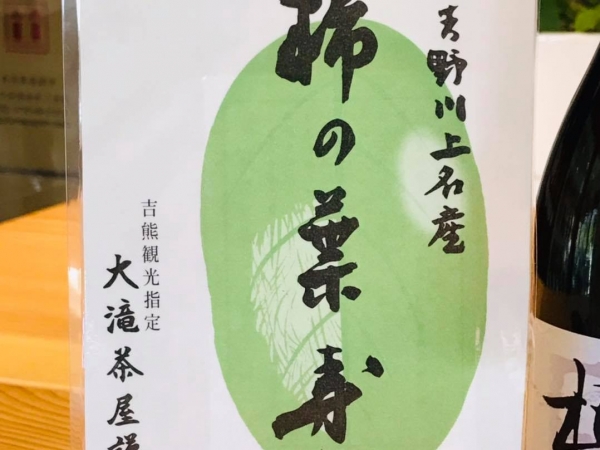 吉野川上名産
柿の葉寿
吉熊観光指定
大滝茶屋謹